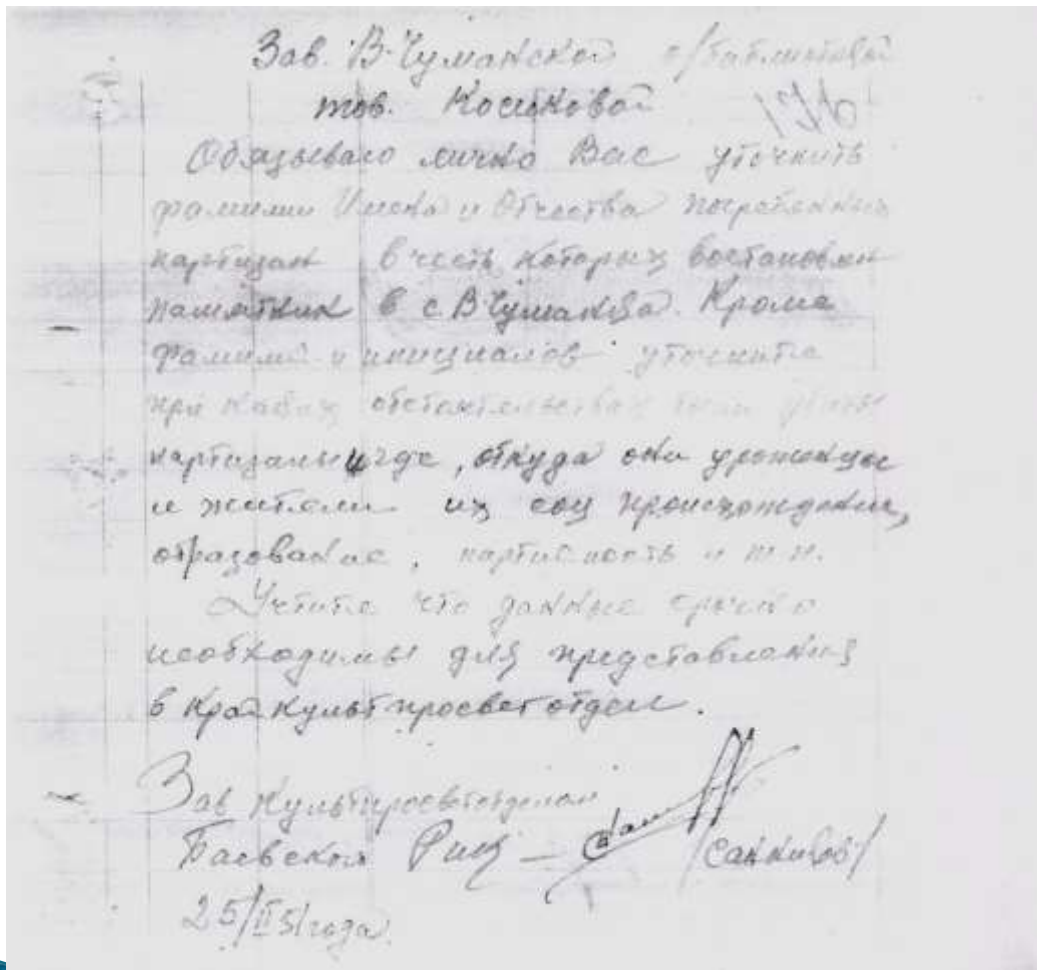 Зав. В-Чуманской с/библиотекой
тов. Косиковой
Обязываю лично Вас уточнить
фамилии Имена и Отчества погребенных
партизан в честь которых востановлен
памятник в с В Чуманка. Кроме
фамилий и инициалов уточните
при каких обстоятельствах были убиты
партизаны и где, откуда они уроженцы
и жители их соц происхождение,
образование, партийность и т п.
Учтите что данные срочно
необходимы для представления
в Крайкультпросветотдел.
Зав Культпросветотделом
Баевского Рик – /Санников/
25/II 51 года